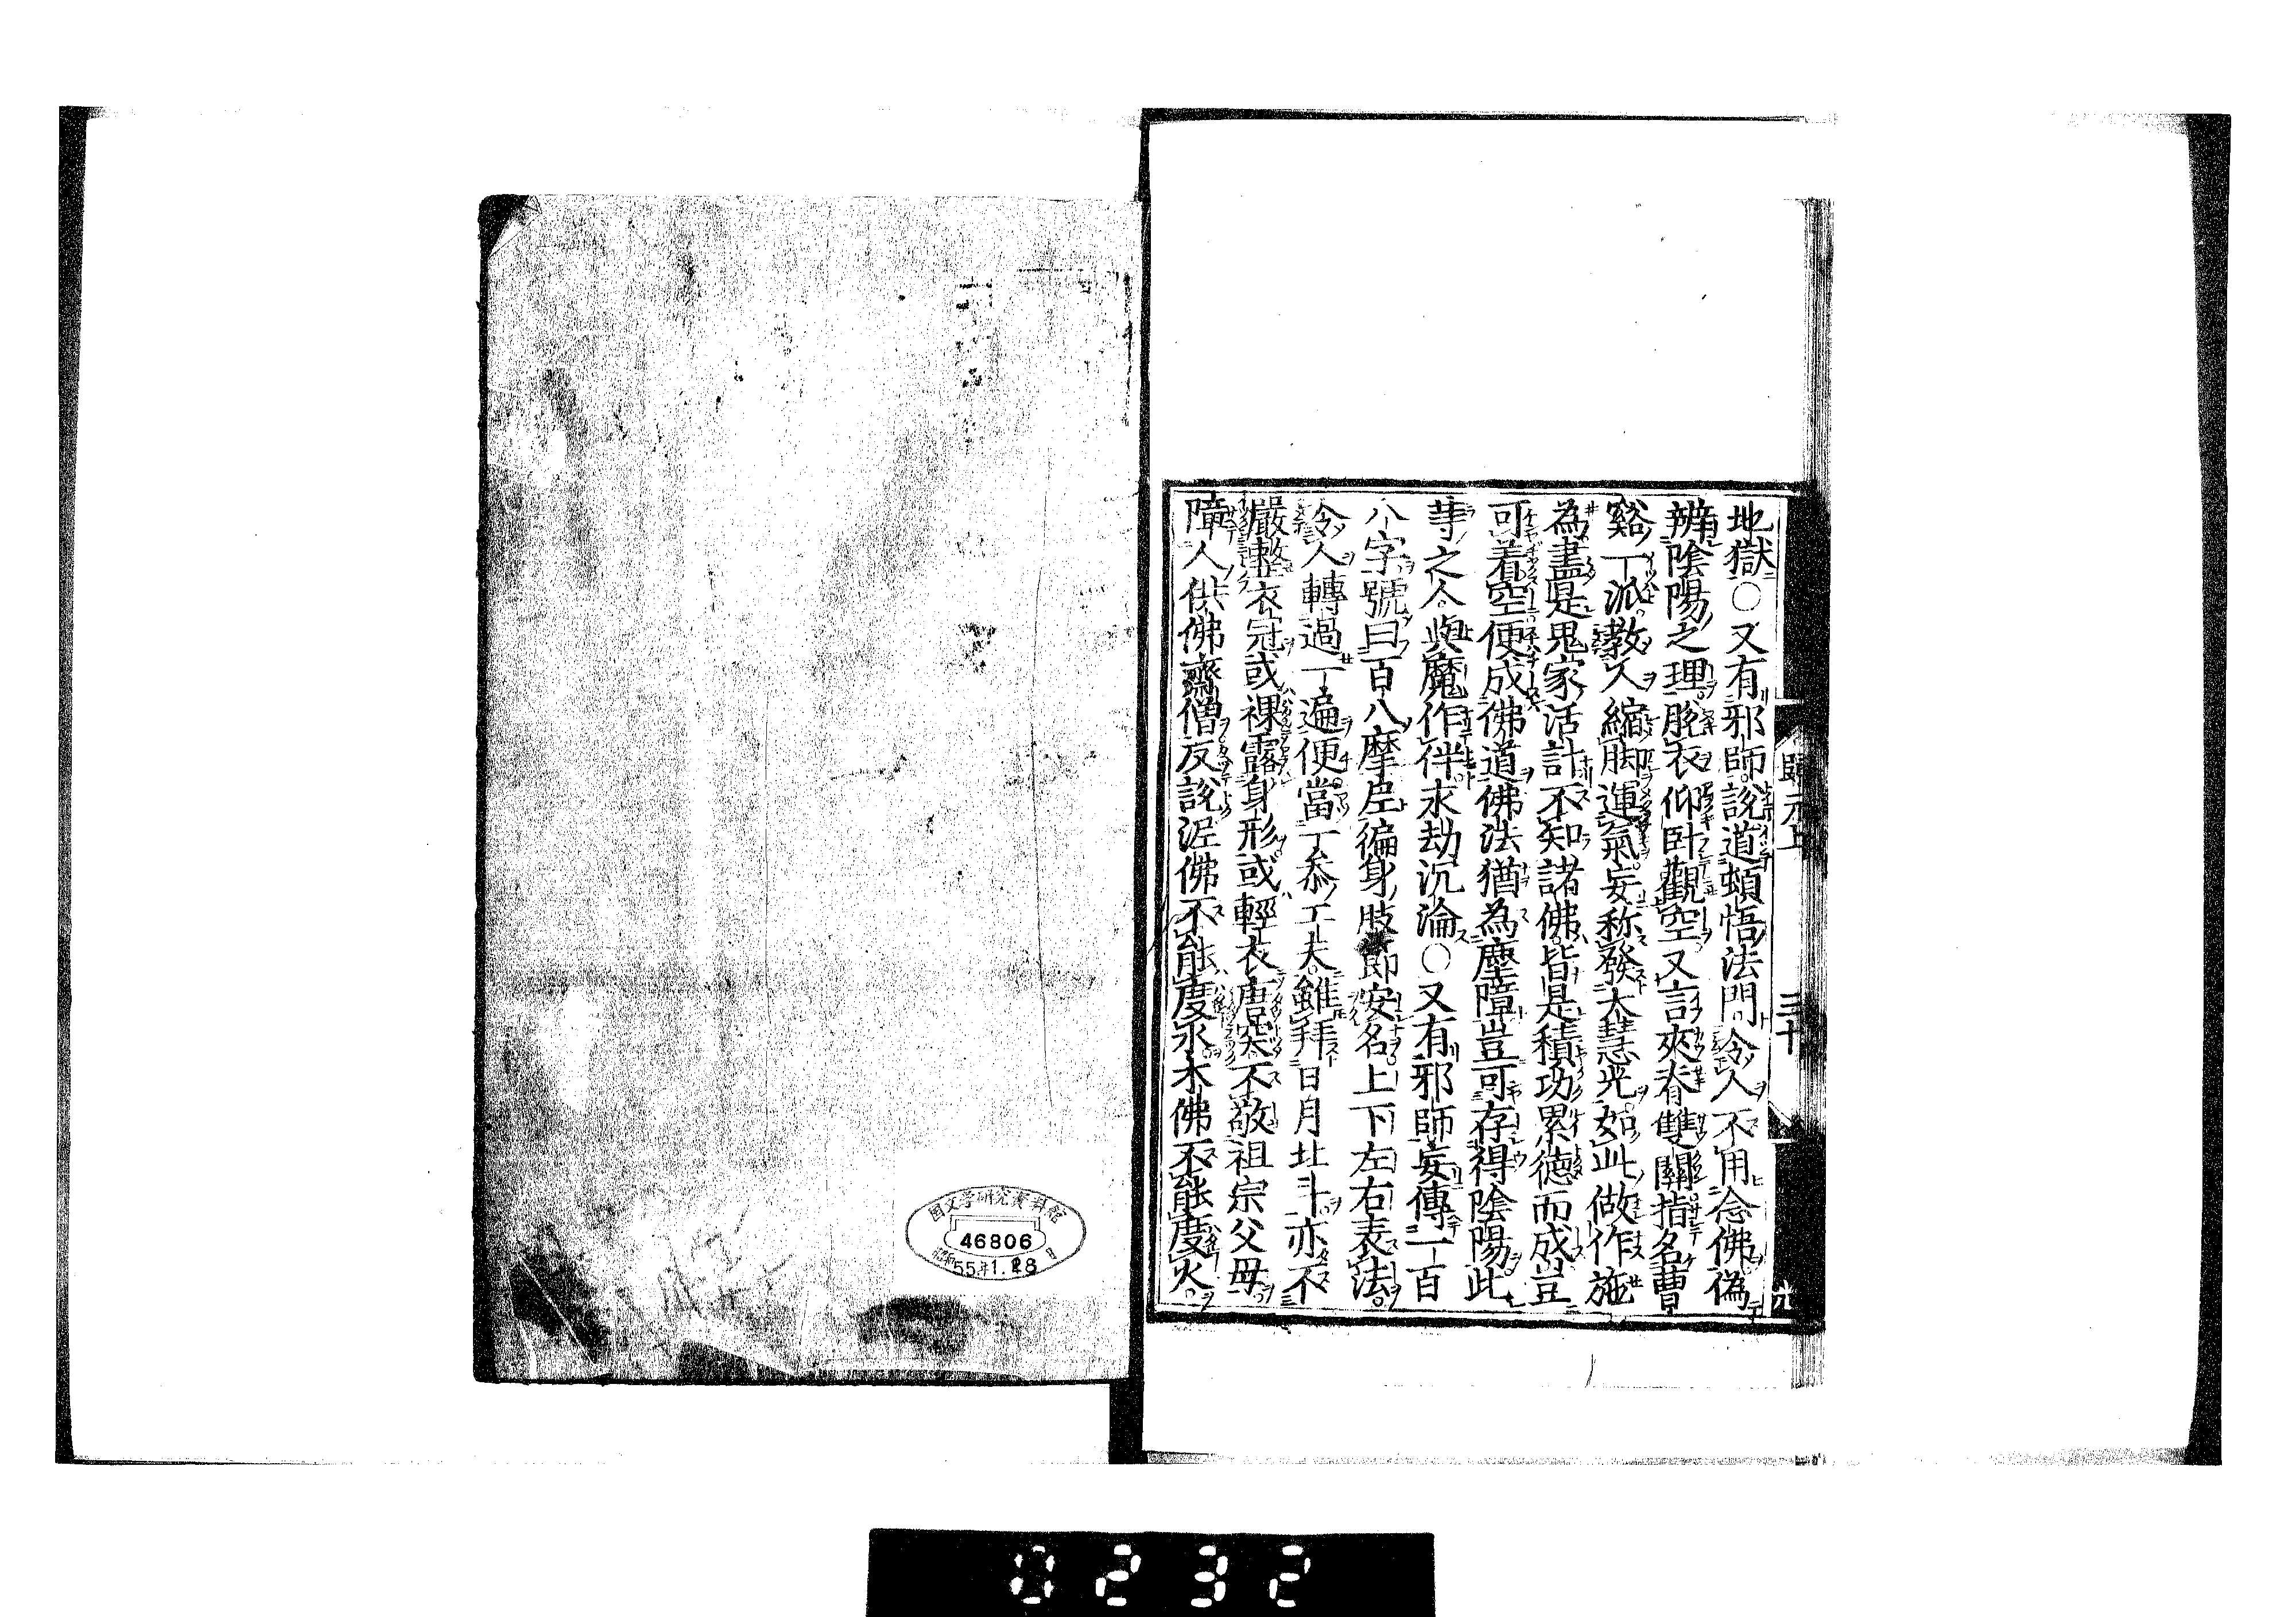 地獄○又有邪師說道頓悟法門令人不用念佛偽
辨陰陽之理脫衣仰卧觀空又言夾脊雙關指名曹
谿一派教人縮脚運氣妄称發大慧光如此做作施
為盡是鬼家活計不知諸佛皆是積功累德而成豈
可着空便成佛道佛法猶為塵障豈可存得陰陽此
䓁之人與魔作伴永劫沉淪○又有邪師妄傳一百
八字號曰百八摩尼徧身肢節安名上下左右表法
令人轉過一遍便當一叅工夫雖拜日月北斗亦不
嚴整衣冠或裸露身形或輕衣唐突不敬祖宗父母
障人供佛齋僧反說泥佛不能度水木佛不能度火
歸元上
三十
国文学研究資料館
46806
昭和55年1.28日
0232